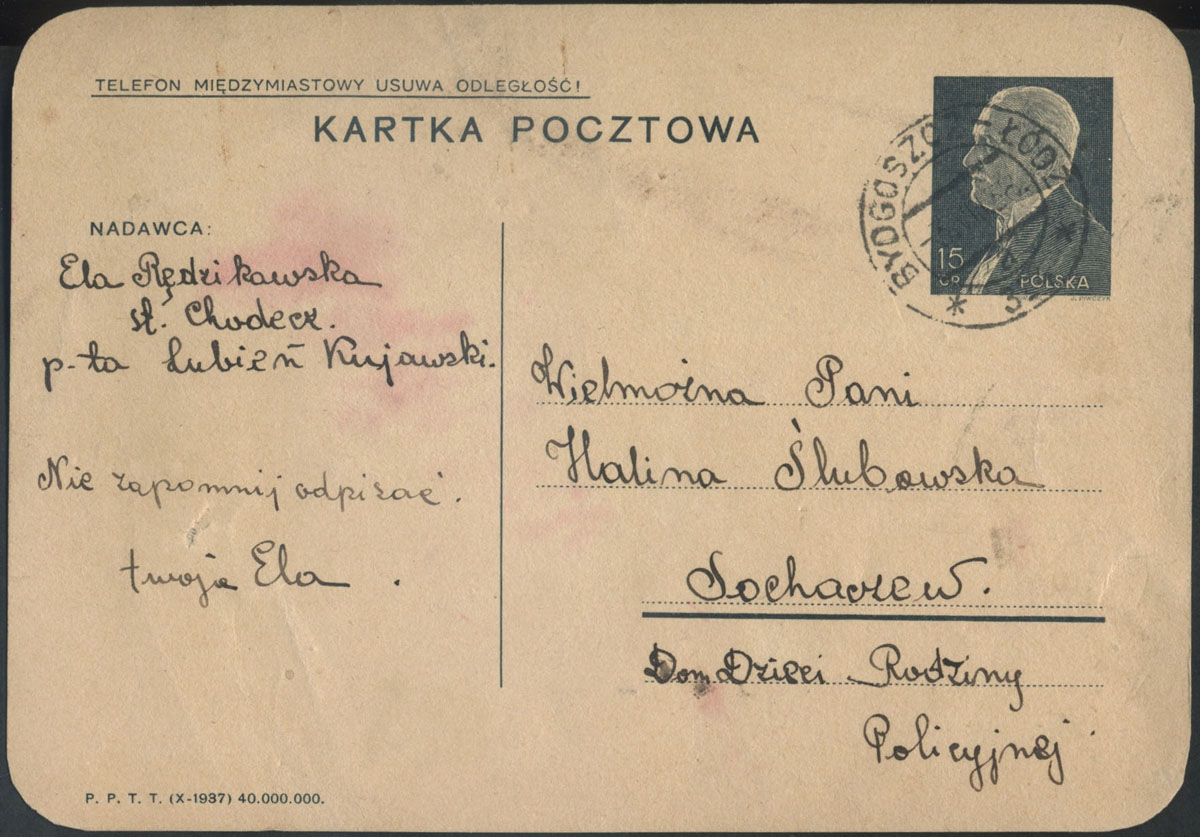 TELEFON MIĘDZYMIASTOWY USUWA ODLEGŁOŚĆ!
KARTKA POCZTOWA
BYDGOSZCZ - ŁÓDZ
15
GR.
POLSKA
NADAWCA:
Ela Rędzikowska
st. Chodecz.
p-ta Lubień Kujawski.
Nie zapomnij odpisać.
twoja Ela.
Wielmożna Pani
Halina Ślubowska
Sochaczew.
Dom Dzieci Rodziny
Policyjnej
P. P. T. T. (X-1937) 40.000.000.